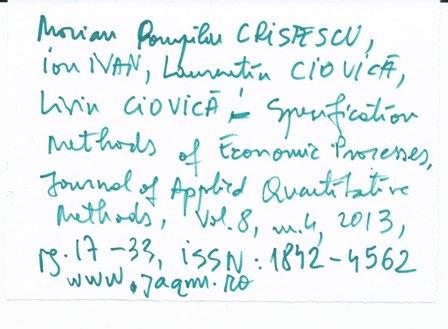 Marian Pompiliu CRISTESCU,
ion IVAN, Laurentiu CIOVICĂ,
Liviu CIOVICĂ - Specification
Methods of Economic Processes,
Journal of Applied Quantitative
Methods, Vol. 8, nr. 4, 2013,
pg. 17-33, iSSN: 1842-4562
www.jaqm.ro